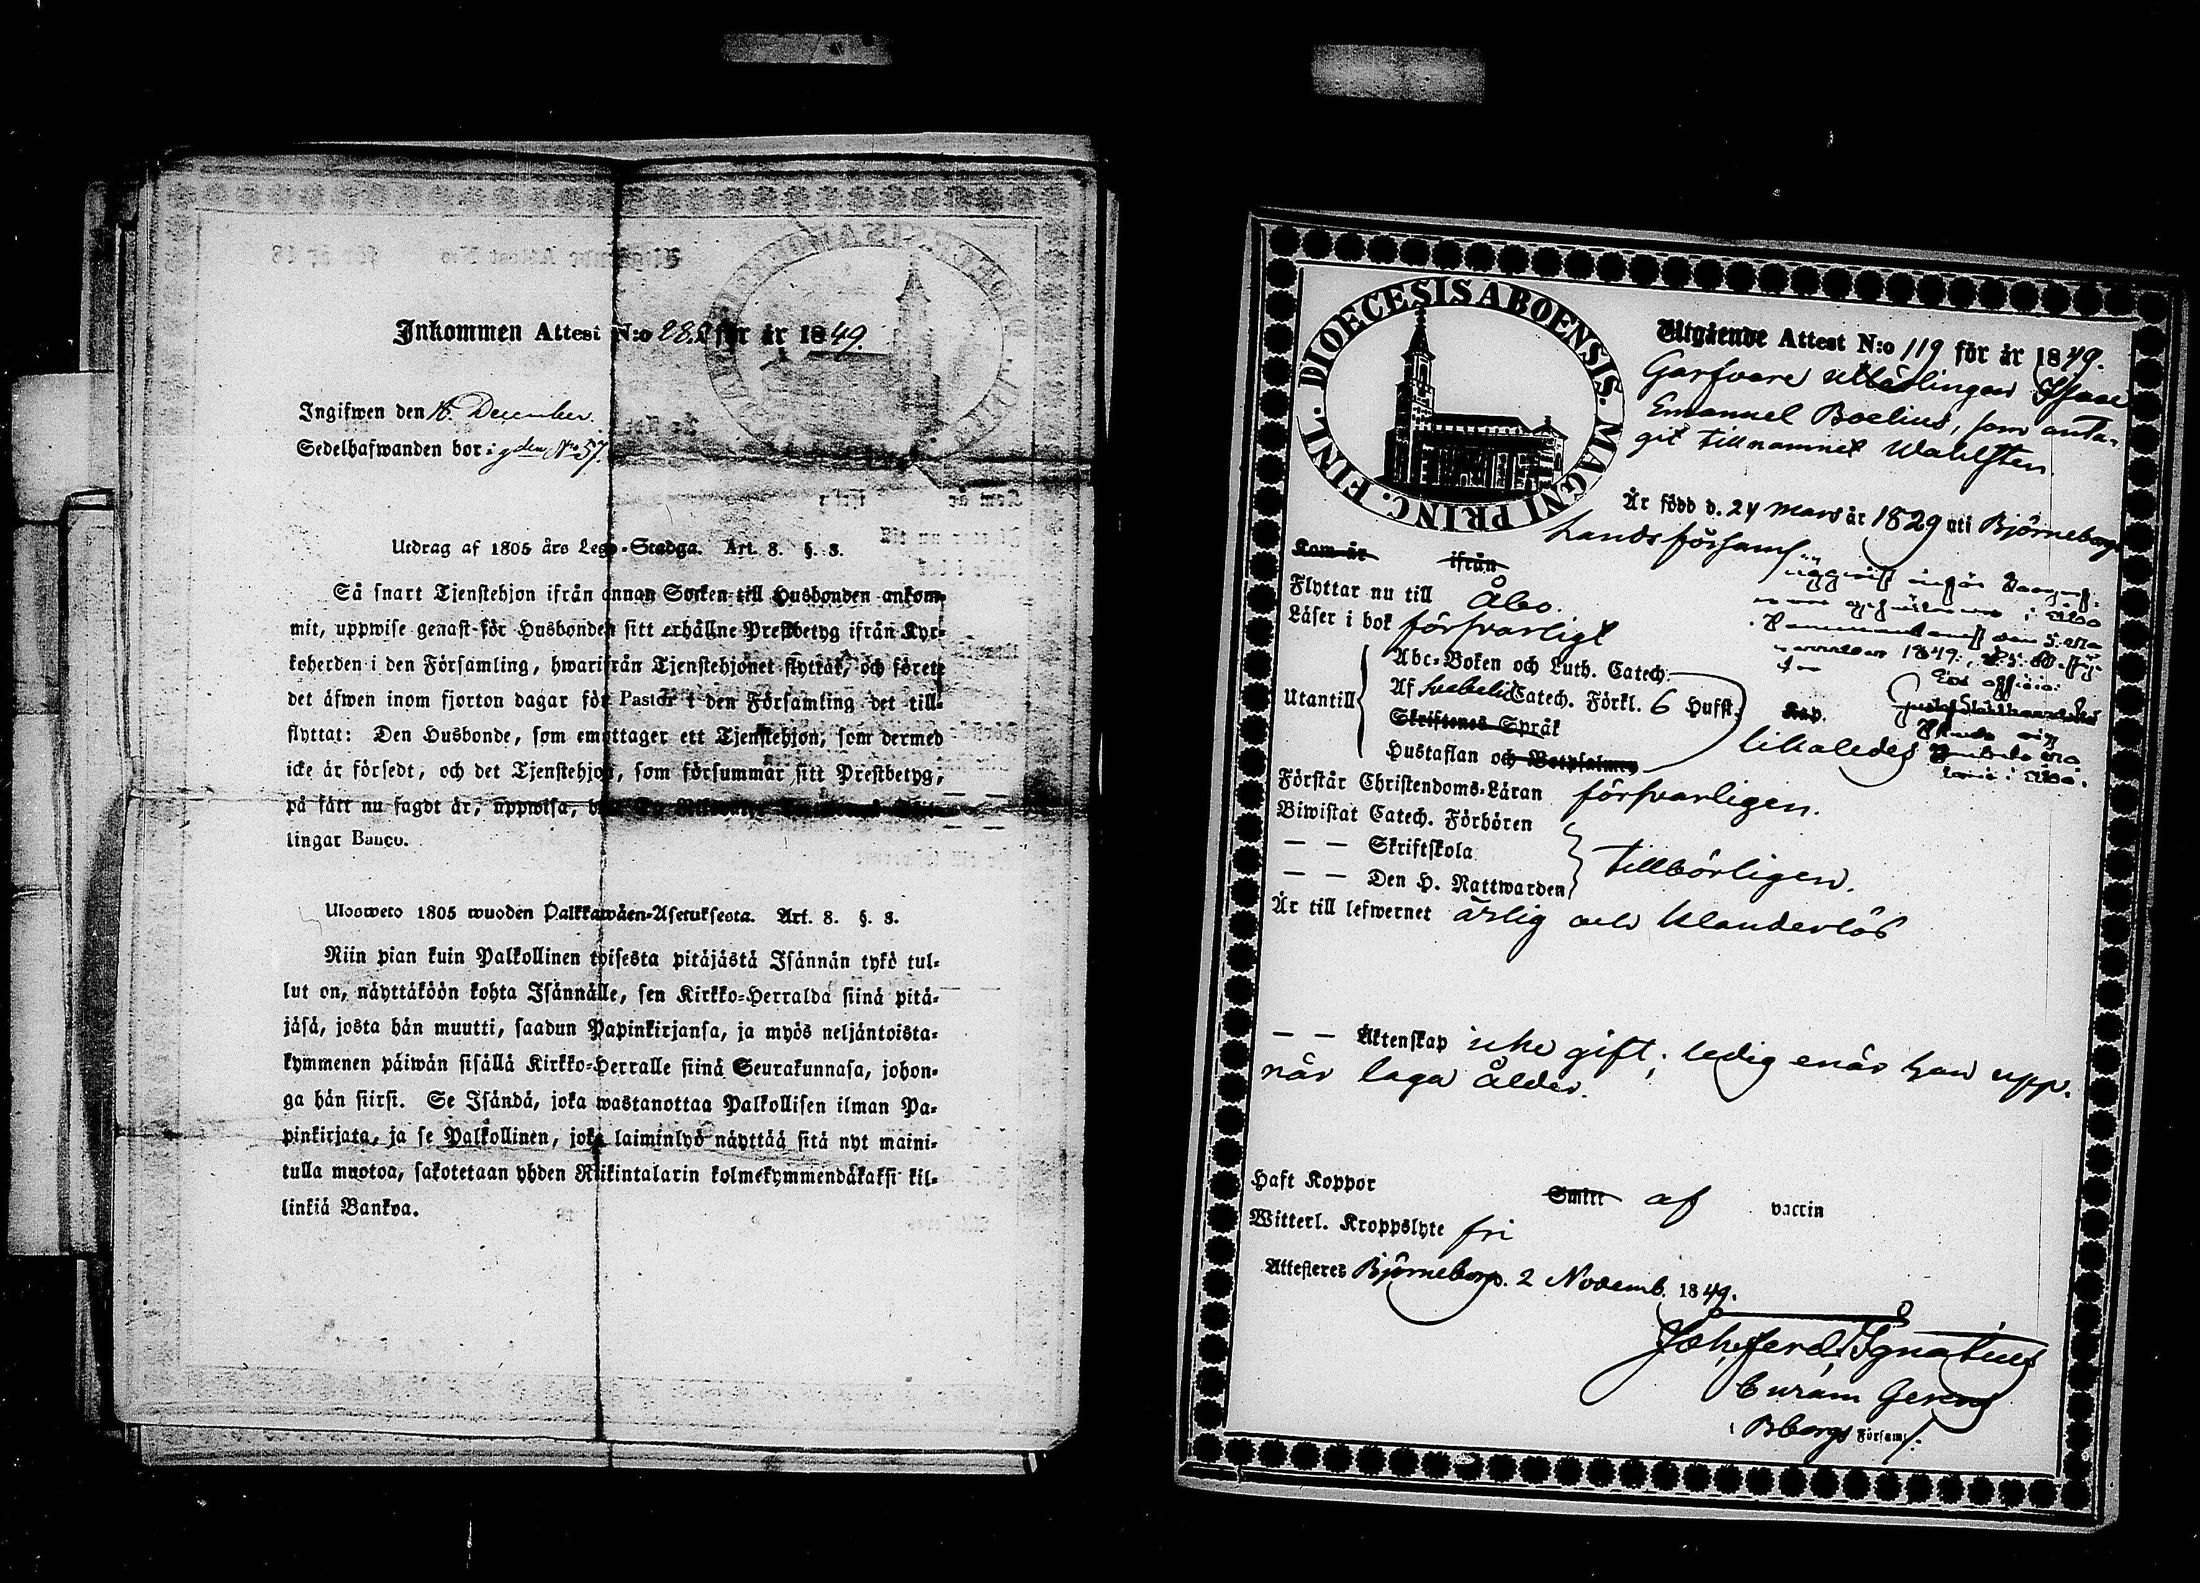 Inkommen Attest N:o 282 för år 1849.
Ingifwen den 18. December.
Sedelhafwanden bor i gden No 57.
Utdrag af 1805 års Lego-Stadga. Art. 8. §. 3.
Så snart Tjenstehjon ifrån annan Socken till Husbonden ankom-
mit, uppwise genast för Husbonden sitt erhållne Prestbetyg ifrån Kyr-
koherden i den Församling, hwarifrån Tjenstehjonet flyttat, och förete
det äfwen inom fjorton dagar för Pastor i den Församling det till-
flyttat: Den Husbonde, som emottager ett Tjenstehjon, som dermed
icke är försedt, och det Tjenstehjon, som försummar sitt Prestbetyg,
på sätt nu sagdt är, uppwisa,
lingar Banco.
Ulosweto 1805 wuoden Palkkawäen-Asetuksesta. Art. 8. §. 3.
Niin pian kuin Palkollinen toisesta pitäjästä Isännän tykö tul-
lut on, näyttäköön kohta Isännälle, sen Kirkko-Herralda siinä pitä-
jäsä, josta hän muutti, saadun Papinkirjansa, ja myös neljäntoista-
kymmenen päiwän sisällä Kirkko-Herralle siinä Seurakunnasa, johon-
ga hän siirsi. Se Isändä, joka wastanottaa Palkollisen ilman Pa-
pinkirjata, ja se Palkollinen, joka laiminlyö näyttää sitä nyt maini-
tulla muotoa, sakotetaan yhden Riikintalarin kolmekymmendäkaksi kil-
linkiä Bankoa.
FINL. DIOECESIS ABOENSIS. MAGNI PRINC.
Utgående Attest N:o 119 för år 1849.
Garfvare utlärlingen Isaac
Emanuel Boelius, som anta-
git tillnamnet Wahlsten.
Är född d. 24 Mars år 1829 uti Björneborgs
Landsförsaml.
Kom år ifrån
Flyttar nu till Åbo.
Läser i bok försvarligt
Utantill
Abc-Boken och Luth. Catech.
Af Svebelii Catech. Förkl. 6 Hufst. Kap.
Skriftenes Språk
Hustaflan och Botpsalmer
likaledes
i Åbo
den 5
1849.
Ex officio:
i Åbo.
Förstår Christendoms-Läran försvarligen.
Biwistat Catech. Förhören
— — Skriftskola
— — Den H. Nattwarden
tillbörligen.
Är till lefwernet ärlig och klanderlös
— — Äktenskap icke gift; ledig enär han upp-
når laga ålder.
Haft Koppor Smitt af vaccin
Witterl. Kroppslyte fri
Attesteres Björneborg d. 2 Novemb. 1849.
Joh. Ferd. Ignatius
Curam Gerens
i Bborgs Församl.